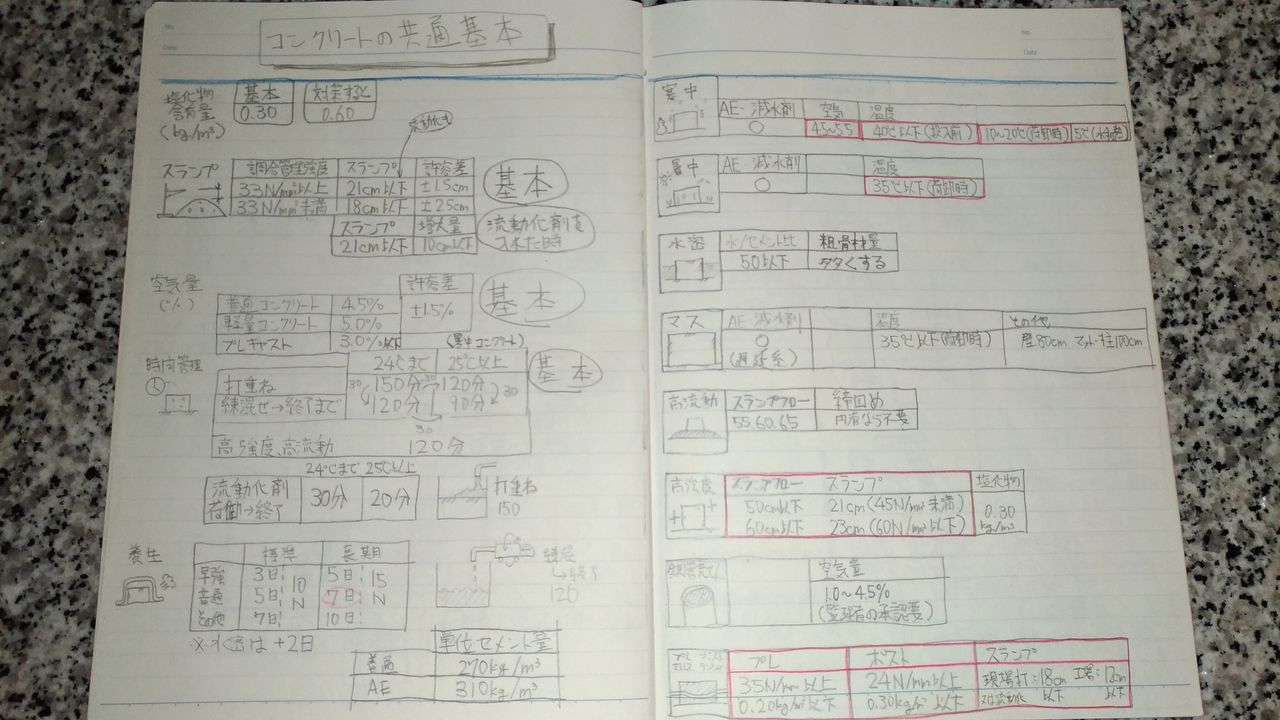 コンクリートの共通基本
塩化物含有量(kg/m³)
基本 対策すると
0.30 0.60
流動化も
スランプ 調合管理強度 スランプ 許容差
33N/mm²以上 21cm以下 ±1.5cm
33N/mm²未満 18cm以下 ±2.5cm
基本
スランプ 増大量
21cm以下 10cm以下
流動化剤を入れた時
空気量(%)
許容差
普通コンクリート 4.5% ±1.5%
軽量コンクリート 5.0%
プレキャスト 3.0%以下
基本
(暑中コンクリート)
時間管理 24℃まで 25℃以上
打重ね 150分 30 120分
練混ぜ→終了まで 30 120分 90分 30
30
基本
高強度、高流動 120分
24℃まで 25℃以上
流動化剤 30分 20分
→終了
打重ね
150
養生 標準 長期
早強 3日 5日
普通 5日 7日
その他 7日 10日
10N 15N
→終了
120
※水密は+2日
単位セメント量
普通 270kg/m³
AE 310kg/m³
No.
Date
寒中 AE・減水剤 空気 温度
○ 4.5~5.5 40℃以下(投入前) 10~20℃(荷卸時) 5℃
暑中 AE・減水剤 温度
○ 35℃以下(荷卸時)
水密 水/セメント比 粗骨材量
50以下 多くする
マス AE・減水剤 温度 その他
○(遅延系) 35℃以下(荷卸時) 壁80cm マット・柱100cm
高流動 スランプフロー 締固め
55.60.65 円滑なら不要
高強度 スランプフロー スランプ 塩化物
50cm以下 21cm(45N/mm²未満) 0.30
60cm以下 23cm(60N/mm²以下) kg/m³
鋼管充てん 空気量
1.0~4.5%
(監理者の承認要)
プレ ポスト スランプ
35N/mm²以上 24N/mm²以上 現場打:18cm以下 工場:12cm以下
0.20kg/m³以下 0.30kg/m³以下